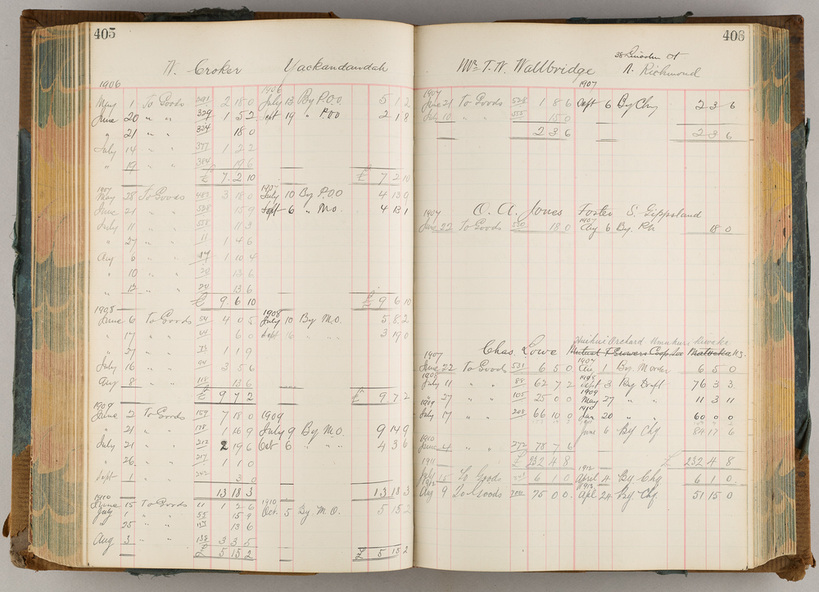 405
W. Croker Yackandandah
1906 1906
May 1 To Goods 2 18 0 July 13 By P.O.O 5 1 2
June 20 " " 329 1 5 2 Sept 14 " P.O.O 2 1 8
" 21 " " 334 18 0
July 14 " " 1 2 2
" 19 " " 19 6
£ 7 2 10 £ 7 2 10
1907 1907
May 28 To Goods 3 18 0 July 10 By P.O.O 4 13 9
June 21 " " 15 9 Sept 6 " M.O. 4 13 1
July 11 " " 18 3
" 27 " " 11 1 4 6
Aug 6 " " 1 10 4
" 10 " " 13 6
" 13 " " 13 6
£ 9 6 10 £ 9 6 10
1908 1908
June 6 To Goods 4 0 5 July 10 By M.O. 5 8 2
" 17 " " 6 0 Sept 3 19 0
" 27 " " 1 1 9
July 16 " " 3 5 6
Aug 8 " " 13 6
£ 9 7 2 £ 9 7 2
1909
June 2 To Goods 159 7 18 0 1909
" 21 " " 1 16 9 July 9 By M.O. 9 14 9
July 21 " " 2 19 6 Oct 6 " " 4 3 6
" 26 " " 1 1 0
Sept 1 " " 3 0
13 18 3 13 18 3
1910 1910
June 15 To Goods 11 1 2 6 Oct. 5 By M.O. 5 15 2
July " " 15 9
" 25 " " 13 6
Aug 3 " " 3 3 5
£ 5 15 2 £ 5 15 2
406
38 Lincoln St
Mrs T. W. Wallbridge N. Richmond
1907 1907
June 21 To Goods 1 8 6 Sept 6 By Chq 2 3 6
July 10 " " 15 0
2 3 6 2 3 6
A. A. Jones Foster S. Gippsland
1907 1907
June 22 To Goods 18 0 Aug 6 By 18 0
Orchard
Chas. Lowe
1907 1907
June 22 To Goods 531 6 5 0 Aug 1 By 6 5 0
July 11 " " 62 7 2 Sept 3 By Draft 76 3 3
" 27 " " 105 25 0 0 May 27 " " 11 3 11
1909 1910
July 17 " " 203 66 10 0 Jan 20 " " 60 0 0
June 6 By Chq 84 17 6
1910
June 4 " " 78 7 6
1911 £ 232 4 8 £ 232 4 8
To Goods 6 1 0 April 4 By Chq 6 1 0
Aug 9 To Goods 75 0 0 Apl 24 By Chq 51 15 0